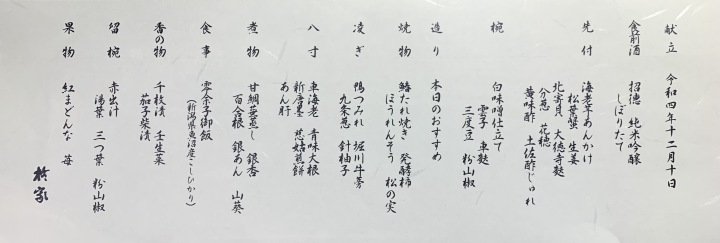 献立　令和四年十二月十日
食前酒　招徳　純米吟醸
しぼりたて
先付　海老芋あんかけ
松葉蟹　生姜
北寄貝　大徳寺麸
分葱　花穂
黄味酢　土佐酢じゅれ
椀　白味噌仕立て
雲子　車麸
三度豆　粉山椒
造り　本日のおすすめ
焼物　鰆たれ焼き　発酵柿
ほうれんそう　松の実
凌ぎ　鴨つみれ　堀川牛蒡
九条葱　針柚子
八寸　車海老　青味大根
新唐墨　慈姑煎餅
あん肝
煮物　甘鯛蕪蒸し　銀杏
百合根　銀あん　山葵
食事　雲余子御飯
（新潟県魚沼産こしひかり）
香の物　千枚漬　壬生菜
茄子柴漬
留椀　赤出汁
湯葉　三つ葉　粉山椒
果物　紅まどんな　苺